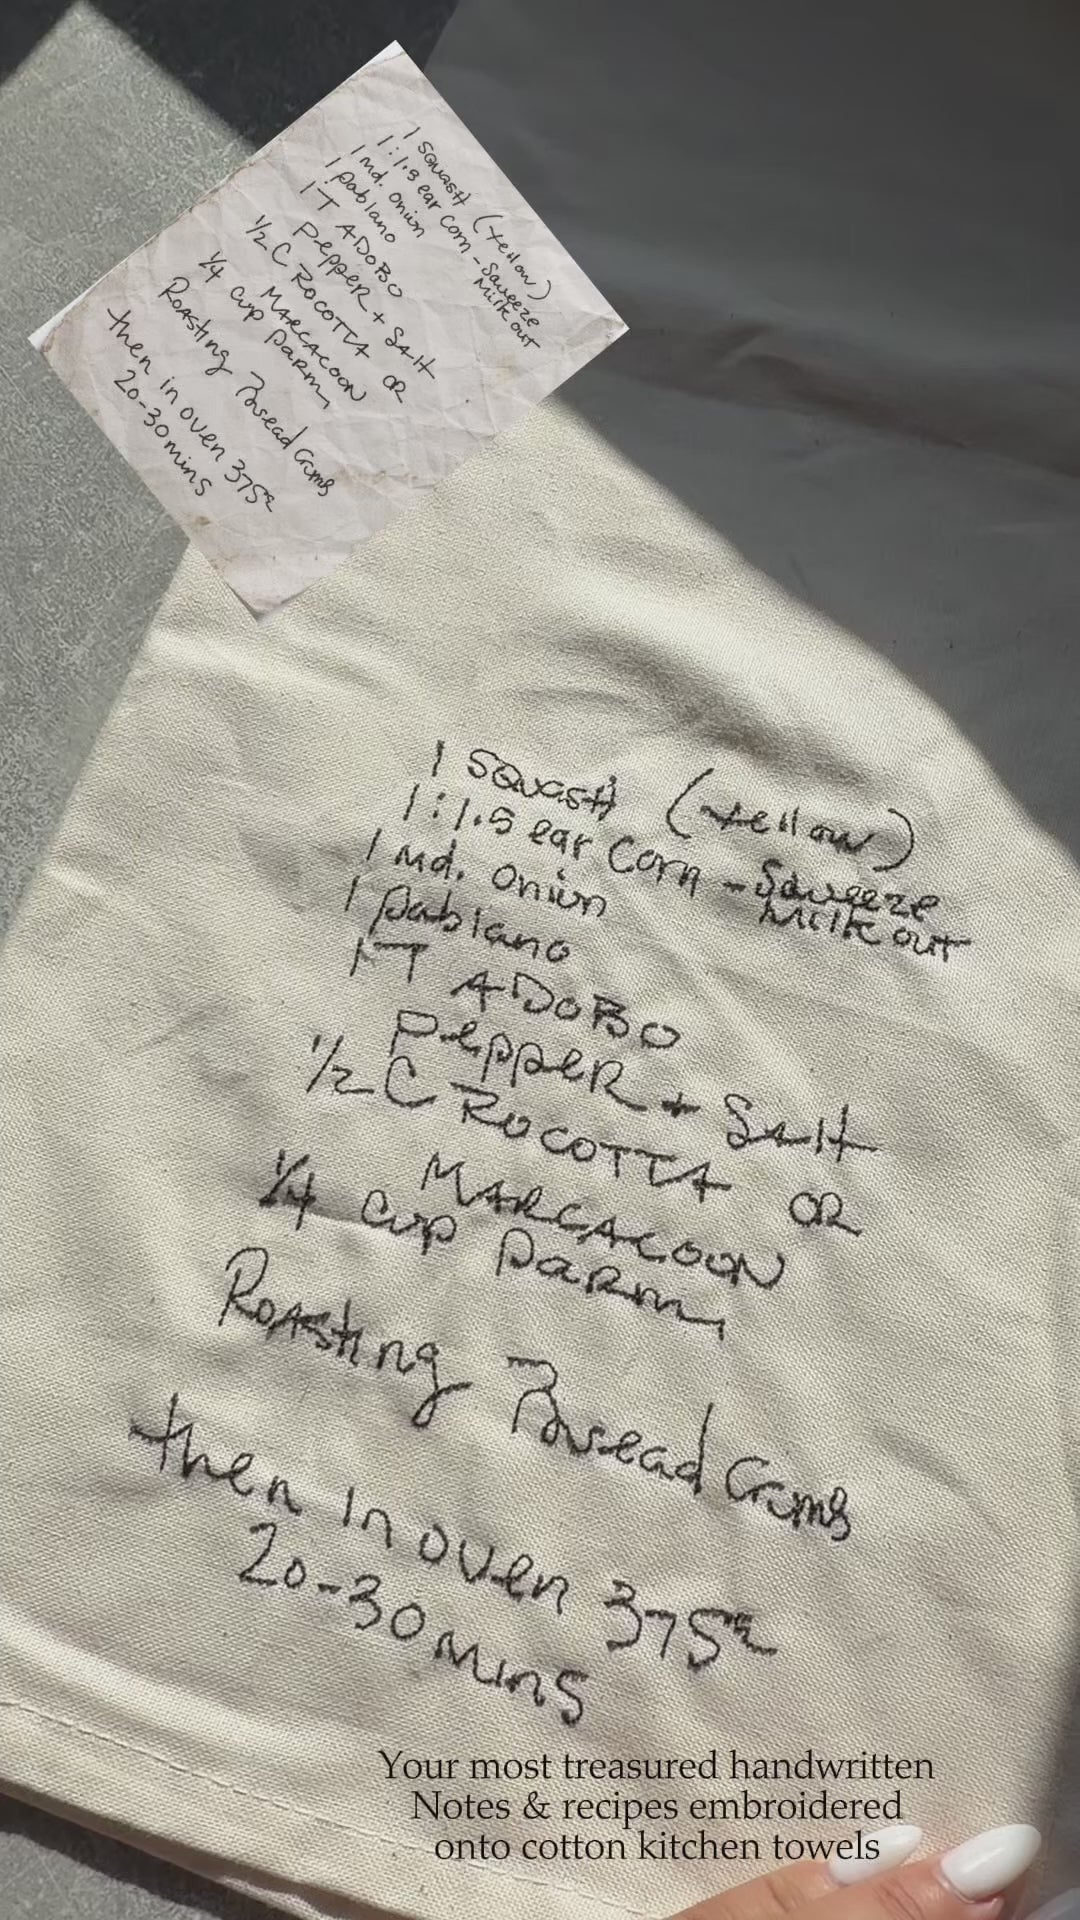 1 SQUASH (Yellow)
1:1.5 ear Corn - Squeeze
Milk out
1 Md. Onion
1 pablano
1 T ADOBO
PePPER + SALT
1/2 C ROCOTTA OR
MARCACOON
1/4 cup PaRm,
ROASting Bread Crmb
then in oven 375º
20-30 mins
1 SQUASH (Yellow)
1:1.5 ear Corn - Squeeze
Milk out
1 Md. Onion
1 pablano
1 T ADOBO
PePPER + SALT
1/2 C ROCOTTA OR
MARCACOON
1/4 cup PaRm,
ROASting Bread Crmb
then in oven 375º
20-30 mins
Your most treasured handwritten
Notes & recipes embroidered
onto cotton kitchen towels